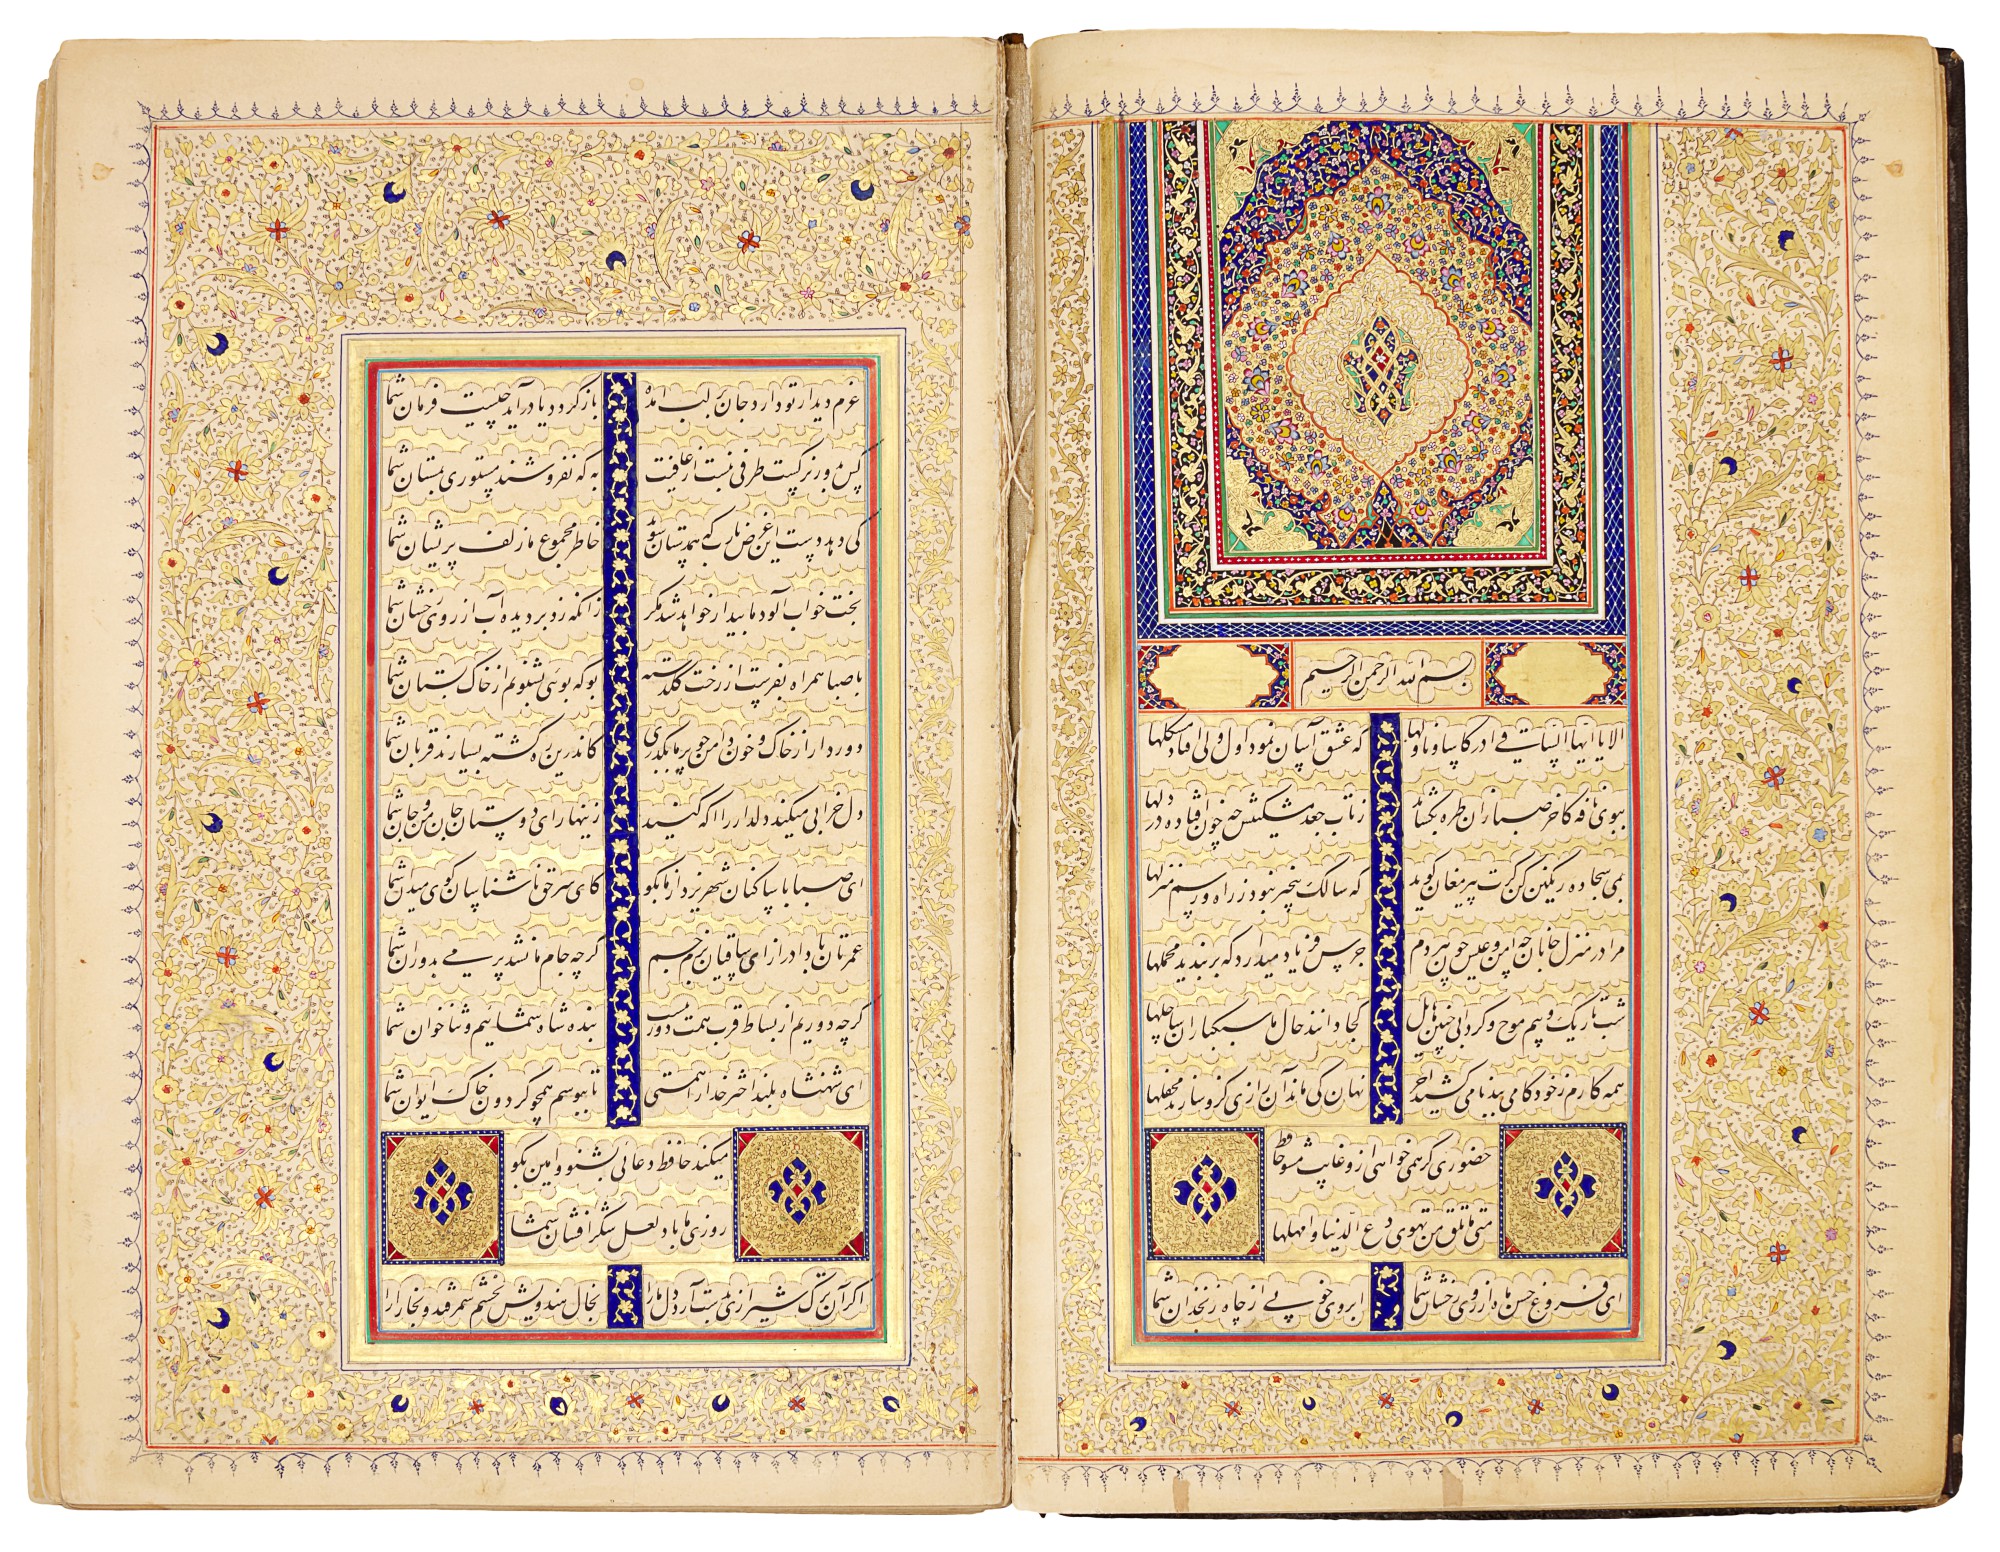 بسم الله الرحمن الرحیم
الا یا ایها الساقی ادر کاسا و ناولها که عشق آسان نمود اول ولی افتاد مشکلها
ببوی نافه کاخر صبا زان طره بگشاید زتاب جعد مشکینش چه خون افتاد در دلها
بمی سجاده رنگین کن گرت پیر مغان گوید که سالک بیخبر نبود ز راه و رسم منزلها
مرا در منزل جانان چه امن و عیش چون هر دم جرس فریاد میدارد که بربندید محملها
شب تاریک و بیم موج و گردابی چنین هایل کجا دانند حال ما سبکباران ساحلها
همه کارم ز خود کامی ببدنامی کشید آخر نهان کی ماند آن رازی کزو سازند محفلها
حضوری گر همی خواهی ازو غایب مشو حافظ
متی ما تلق من تهوی دع الدنیا و اهملها
ای فروغ حسن ماه از روی رخشان شما ابروی خوبی از چاه زنخدان شما
عزم دیدار تو دارد جان بر لب آمده باز گردد یا در آید چیست فرمان شما
کس بدور نرگست طرفی نبست از عافیت به که نفروشند مستوری بمستان شما
کی دهد دست این غرض یارب که همدستان شوند خاطر مجموع ما زلف پریشان شما
بخت خواب آلود ما بیدار خواهد شد مگر زانکه زد بر دیده آب از روی رخشان شما
با صبا همراه بفرست از رخت گلدسته بو که بوئی بشنویم از خاک بستان شما
دور دار از خاک و خون دامن چو بر ما بگذری کاندرین ره کشته بسیارند قربان شما
دل خرابی میکند دلدار را آگه کنید زینهار ای دوستان جان من و جان شما
ای صبا با ساکنان شهر یزد از ما بگو کای سر حق ناشناسان گوی میدان شما
عمرتان بادا دراز ای ساقیان بزم جم گرچه جام ما نشد پر می بدوران شما
گرچه دوریم از بساط قرب همت دور نیست بنده شاه شمائیم و ثنا خوان شما
ای شهنشاه بلند اختر خدا را همتی تا ببوسم همچو گردون خاک ایوان شما
میکند حافظ دعائی بشنو و آمین بگو
روزی ما باد لعل شکر افشان شما
اگر آن ترک شیرازی بدست آرد دل ما را بخال هندویش بخشم سمرقند و بخارا را